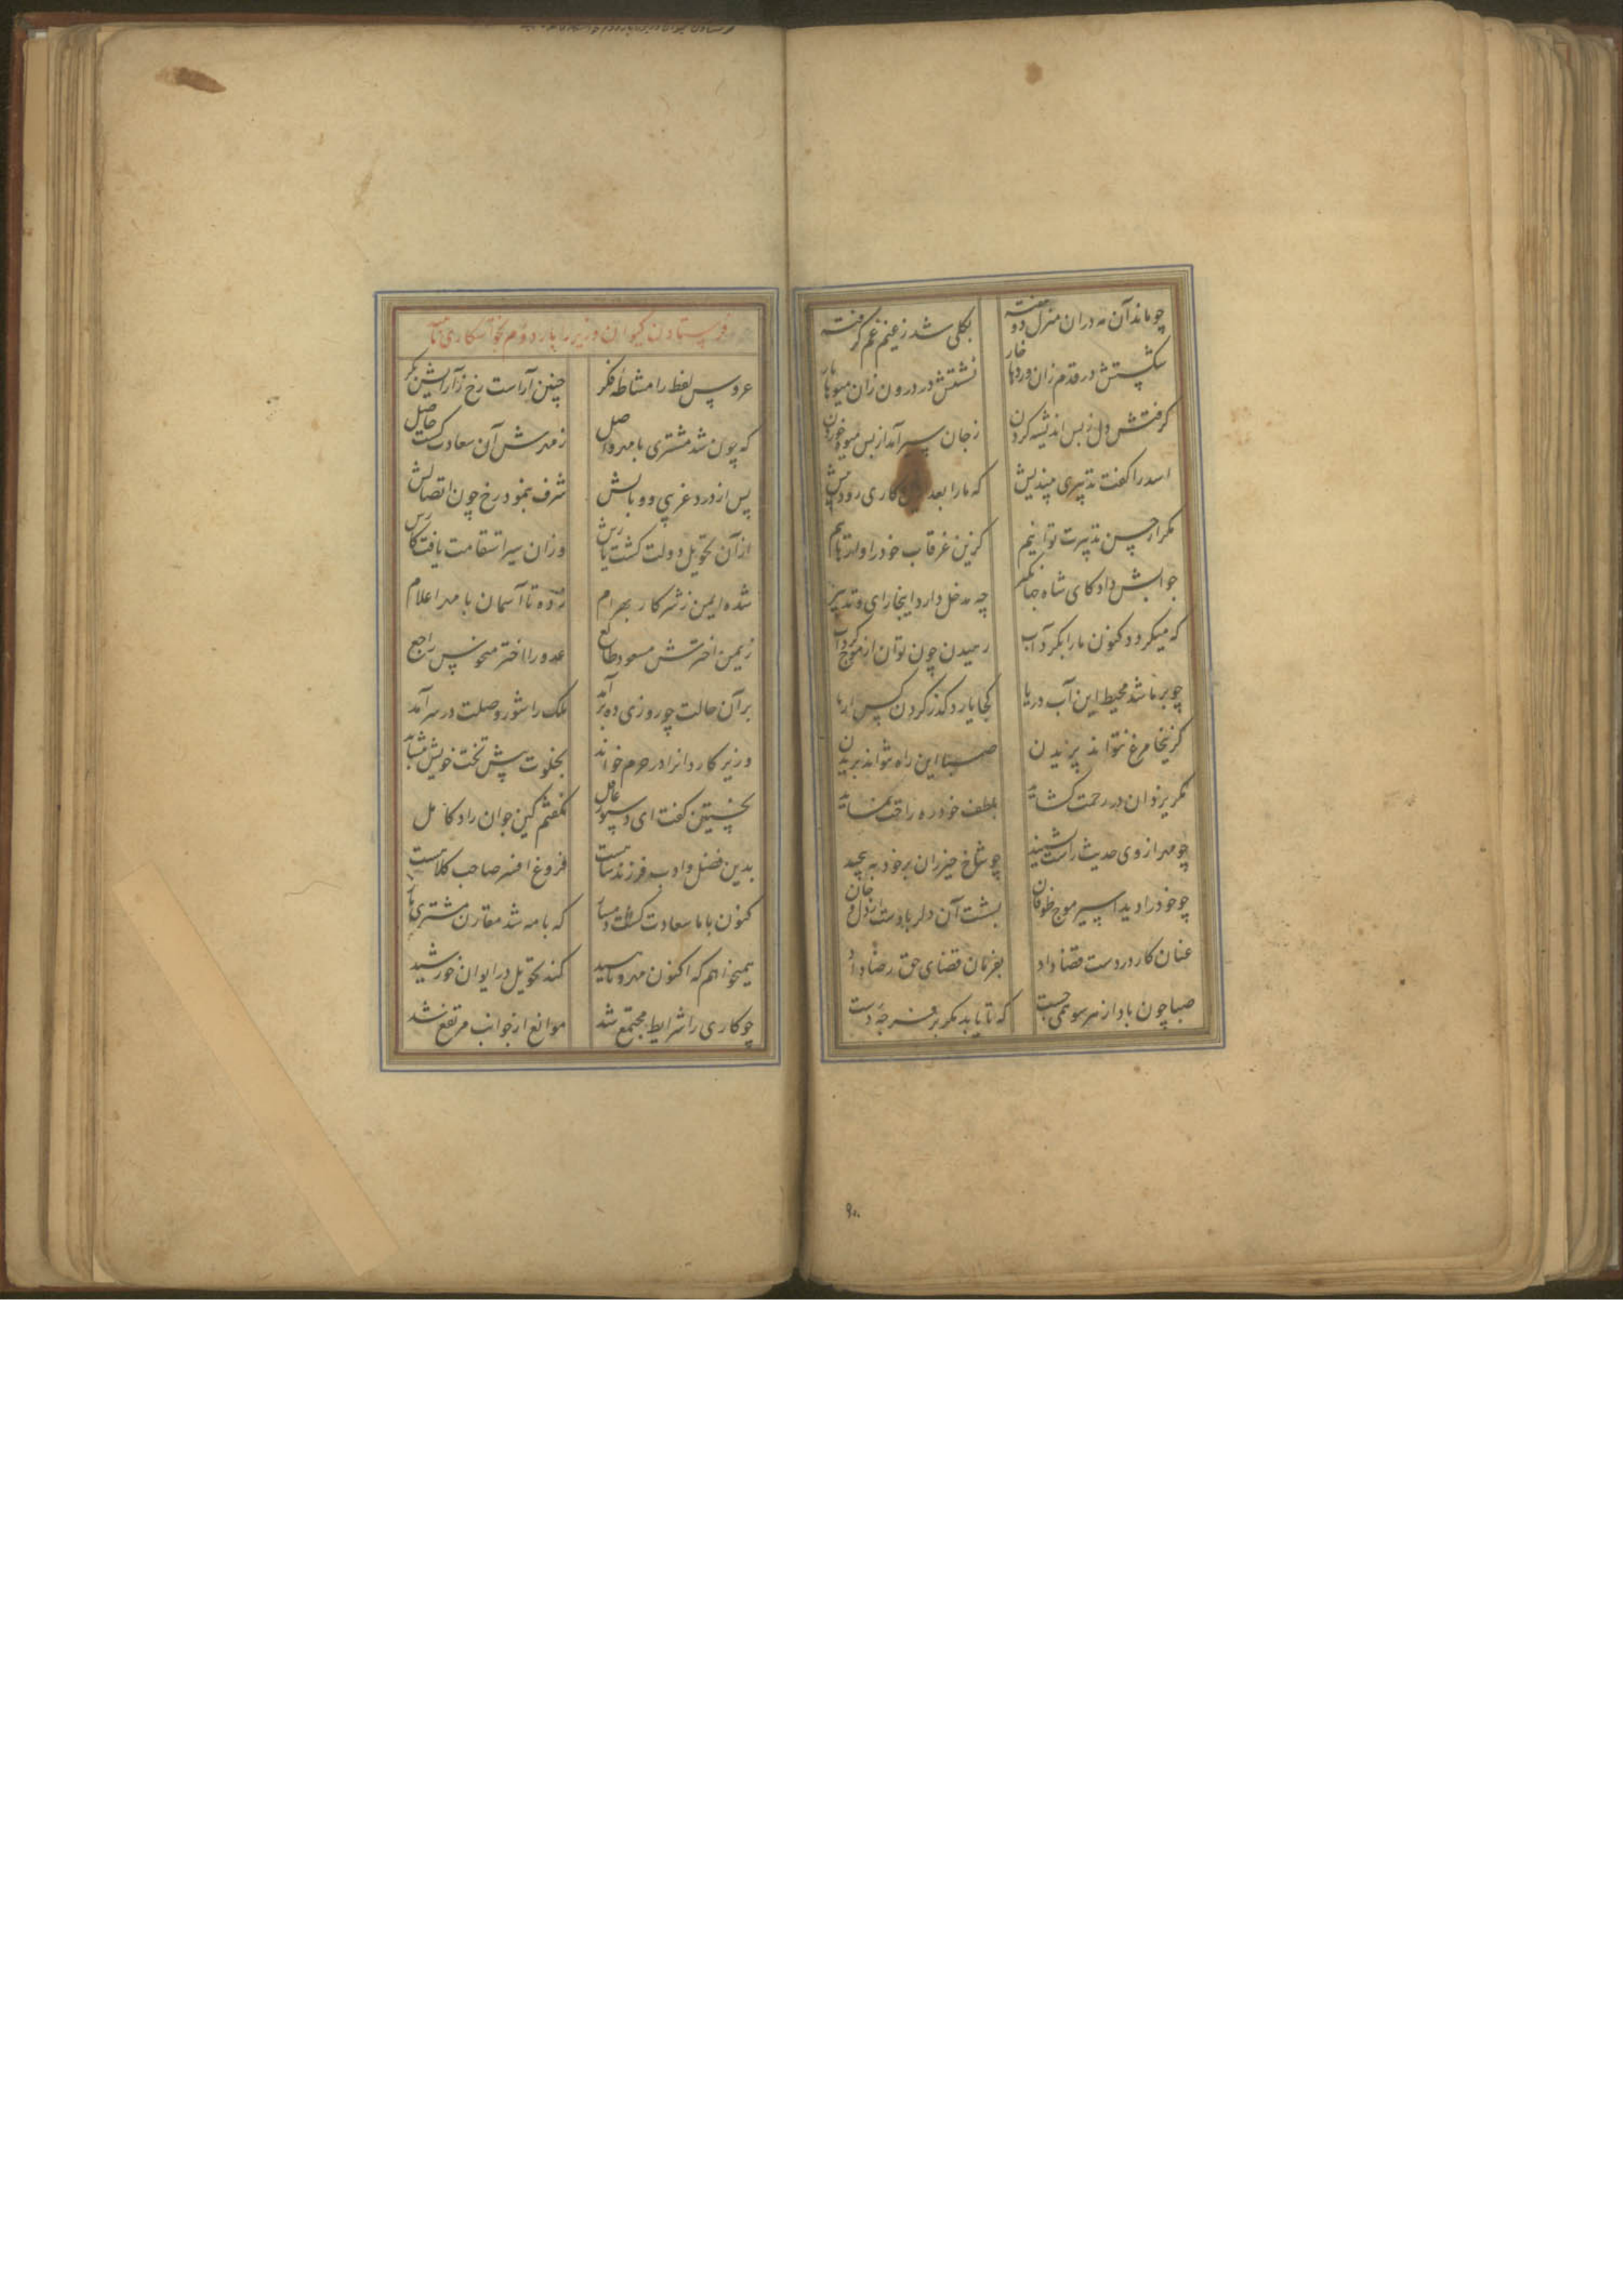 چو ماند آن مه دران منزل دو هفته بکلی شد ز غم کرفته
شکستش در قدم زان وردها خار نشتش در درون زان میوها بار
کرفتش دل ز بس اندیشه کردن ز جان سیر آمد از بس میوه خوردن
اسد را کفت تدبیری بیندیش که ما را بعد کاری رود پیش
مکر از حسن تدبیرت توانیم کزین غرقاب خود را وارهانیم
جوابش داد کای شاه جهانکیر چه مدخل دارد اینجا رای و تدبیر
که میکرود کنون ما را بکرد آب رهیدن چون توان از موج کرداب
چو بر ما شد محیط این آب دریا کجا یارد کذر کردن کس از ما
کزینجا مرغ نتواند پریدن صبا این راه نتواند بریدن
مکر یزدان در رحمت کشاید بلطف خود ره راحت نماید
چو مهر از وی حدیث راست بشنید چو شاخ خیزران بر خود بپیچید
چو خود را دید اسیر موج طوفان بشست آن دلربا دست از دل و جان
عنان کار در دست قضا داد بفرمان قضای حق رضا داد
صبا چون باد از هر سو همی جست که تا یابد مکر بر فرجه دست
۹۰
فرستادن کیوان وزیر را بار دوم بخواستکاری
عروس لفظ را مشاطه فکر چنین آراست رخ ز آرایش بکر
که چون شد مشتری با مهر واصل ز مهرش آن سعادت کشت حاصل
پس از درد غریبی و وبالش شرف بنمود رخ چون اتصالش
از آن تحویل دولت کشت یارش وزان سیر استقامت یافت کارش
شده ایمن ز شر کار بهرام زده تا آسمان با مهر اعلام
ز یمن اخترش مسعود طالع عدو را اختر منحوس راجع
بر آن حالت چو روزی ده بر آمد ملک را شور وصلت در سر آمد
وزیر کاردانرا در حرم خواند بخلوت پیش تخت خویش بنشاند
نخستین کفت ای دستور عاقل نکفتم کین جوان راد کامل
بدین فضل و ادب فرزند شاهست فروغ افسر صاحب کلاهست
کنون با ما سعادت کشت دمساز که با مه شد مقارن مشتری باز
همیخواهم که اکنون مهر و ناهید کند تحویل در ایوان خورشید
چو کاری را شرایط مجتمع شد موانع از جوانب مرتفع شد